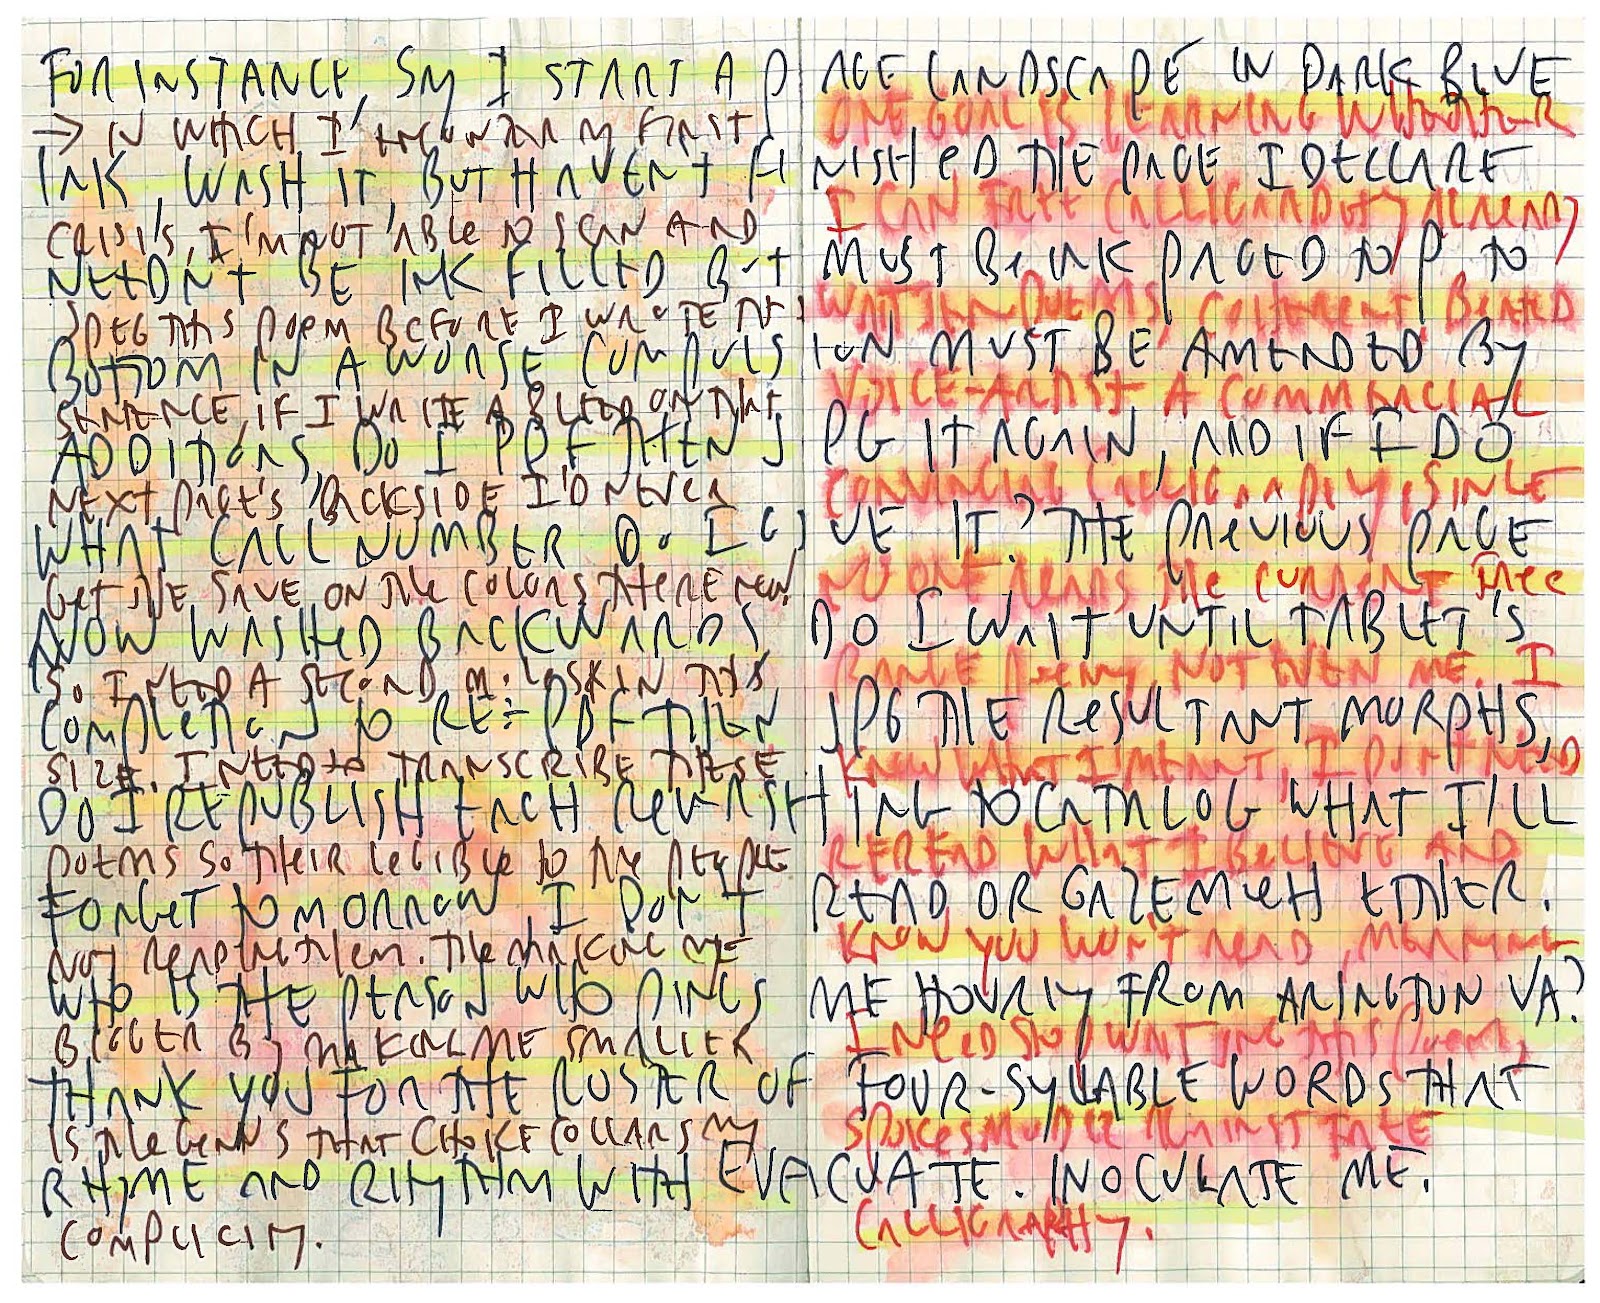 FOR INSTANCE, SAY I START A PAGE LANDSCAPE IN DARK BLUE
→ IN WHICH I MY FIRST
ONE GOAL IS LEARNING WHETHER
INK, WASH IT, BUT HAVENT FINISHED THE PAGE I DECLARE
CRISIS, I'M NOT ABLE TO SCAN AND
I CAN FREE CALLIGRAPHY ALREADY
NEEDN'T BE INK FILLED BUT MUST BE INK PAGED TOP TO
JPEG THIS POEM BEFORE I WROTE THIS
BOTTOM IN A WORSE COMPULSION MUST BE AMENDED BY
SENTENCE, IF I WRITE A BLEED ON THAT
VOICE-ARTIST A COMMERCIAL
ADDITIONS, DO I PDF THEN JPG IT AGAIN, AND IF I DO
NEXT PAGE'S BACKSIDE I'D NEVER
CONVINCING CALLIGRAPHY, SINCE
WHAT CALL NUMBER DO I GIVE IT? THE PREVIOUS PAGE
GET THE SAVE ON THE COLORS THERE NOW
NO ONE READS THE CURRENT FREE
NOW WASHED BACKWARDS, DO I WAIT UNTIL TABLET'S
SO I NEED A SECOND IN THIS
RANGE POEM, NOT EVEN ME. I
COMPLETION TO RE-PDF THEN JPG THE RESULTANT MORPHS,
SIZE. I NEED TO TRANSCRIBE THESE
KNOW WHAT I MEANT, I DON'T NEED
DO I REPUBLISH EACH REWASHING TO CATALOG WHAT I'LL
POEMS SO THEIR LEGIBLE TO THE PEOPLE
REREAD WHAT I BELIEVE AND
FORGET TOMORROW, I DON'T READ OR GAZE MUCH EITHER.
NOT READING THEM. THE MAKING ME
KNOW YOU WON'T READ, MEANING
WHO IS THE PERSON WHO PINGS ME HOURLY FROM ARINGTON VA?
BIGGER BY MAKING ME SMALLER
I NEED STOP WRITING THIS POEM,
THANK YOU FOR THE ROSTER OF FOUR-SYLLABLE WORDS THAT
IS THE GENIUS THAT CHOKECOLLARS MY
SPOKESMODEL AGAINST FREE
RHYME AND RHYTHM WITH EVACUATE. INOCULATE ME.
COMPLICITY.
CALLIGRAPHY.